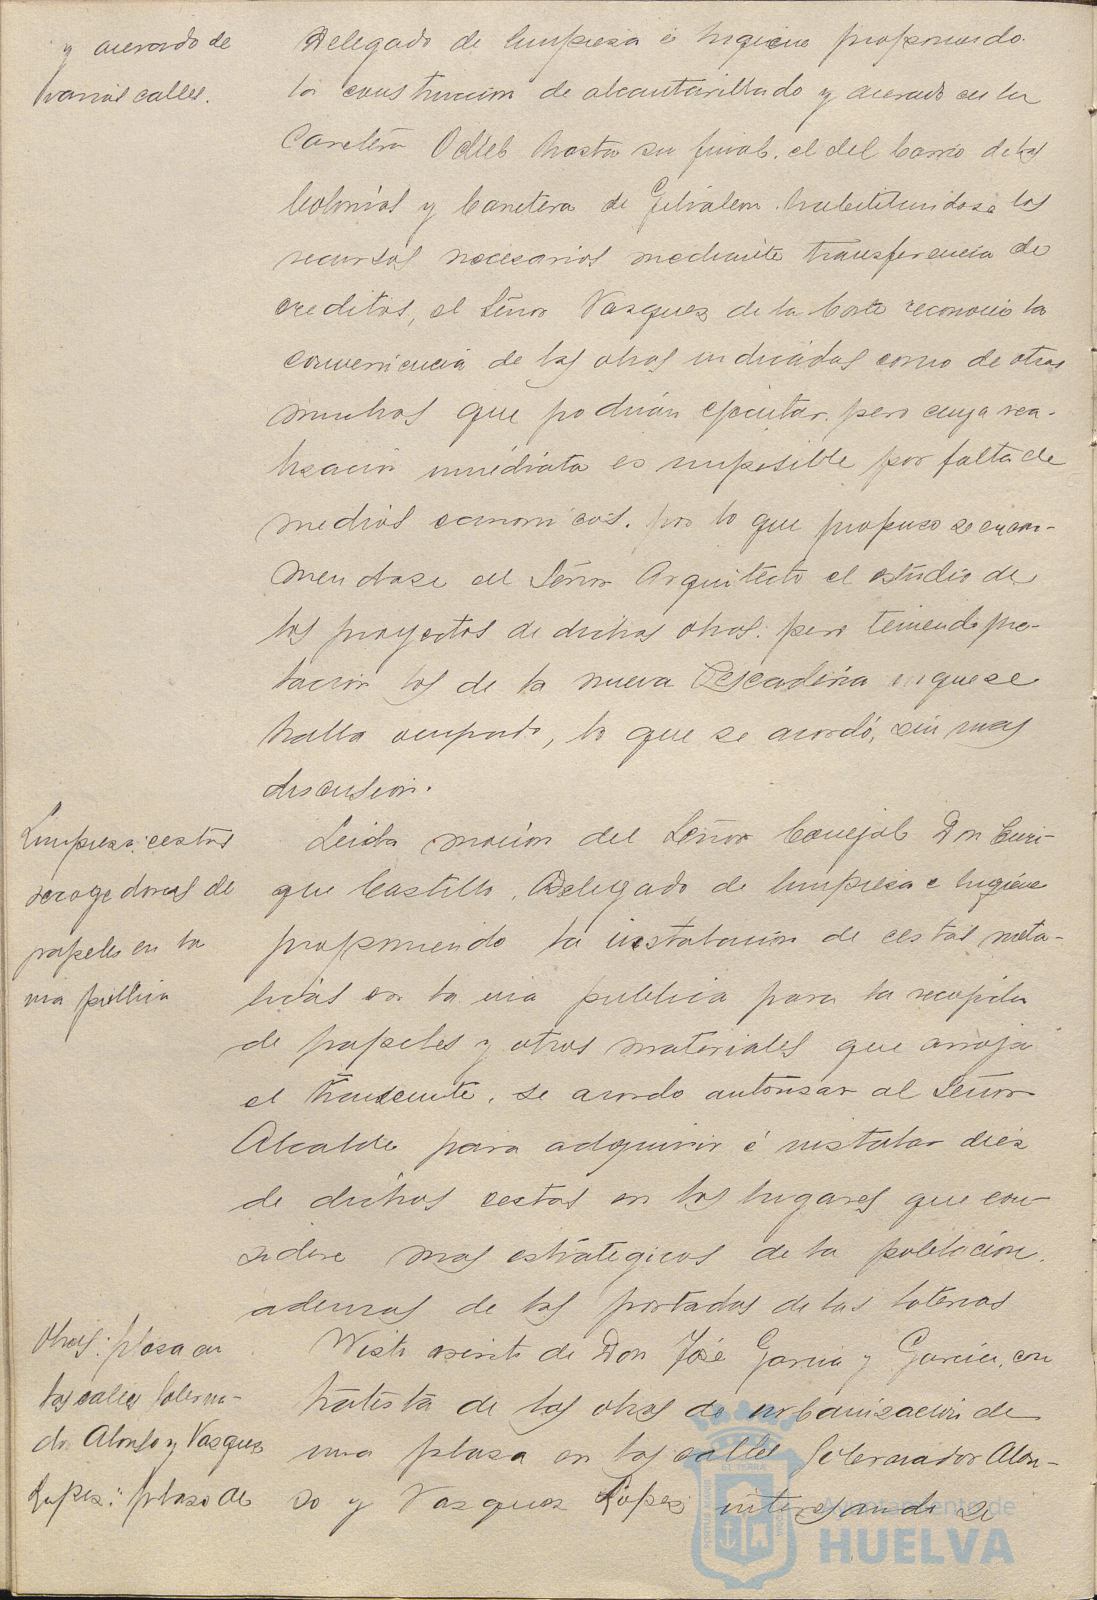 y acerado de
varias calles.
Delegado de limpieza é higiene proponiendo
la construccion de alcantarillado y acerado en la
Carretera Odiel hasta su final, el del barrio de las
Colonias y Carretera de Gibraleon habilitandose los
recursos necesarios mediante transferencia de
creditos, el Señor Vazquez de la Corte reconoció la
conveniencia de las obras indicadas como de otras
muchas que podrian ejecutar, pero cuya rea-
lizacion inmediata es imposible por falta de
medios economicos, por lo que propuso se encom-
mendase al Señor Arquitecto el estudio de
los proyectos de dichas obras, pero teniendo pre-
lacion los de la nueva Pescaderia en que se
halla ocupado, lo que se acordó, sin mas
discusion.
Limpieza: cestas
recogedoras de
papeles en la
via publica
Leida mocion del Señor Concejal Don Enri-
que Castillo, Delegado de limpieza e higiene
proponiendo la instalacion de cestas meta-
licas en la via publica para la recogida
de papeles y otros materiales que arroja
el transeunte, se acordo autorizar al Señor
Alcalde para adquirir é instalar diez
de dichas cestas en los lugares que con-
sidere mas estrategicos de la poblacion,
ademas de las portadas de las loterias
Obras: plaza en
las calles Goberna-
dor Alonso y Vazquez
Lopez: plazo de
Visto escrito de Don José Garcia y Garcia, con
tratista de las obras de urbanizacion de
una plaza en las calles Gobernador Alon-
so y Vazquez Lopez interesando se
Ayuntamiento de
HUELVA